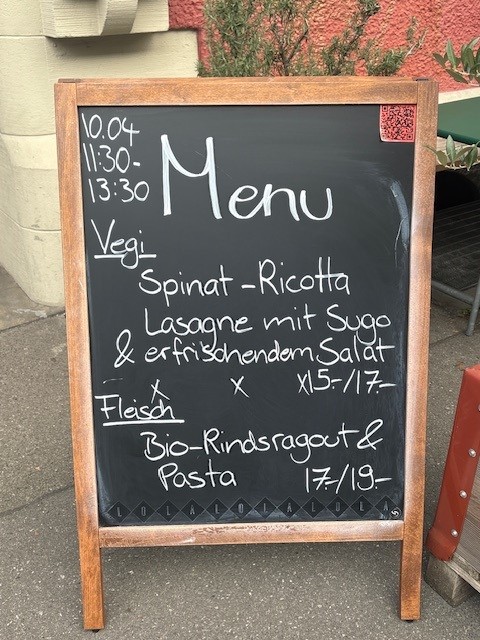 10.04
11:30-
13:30
Menu
Vegi
Spinat-Ricotta
Lasagne mit Sugo
& erfrischendem Salat
x x x 15.-/17.-
Fleisch
Bio-Rindsragout &
Pasta 17.-/19.-